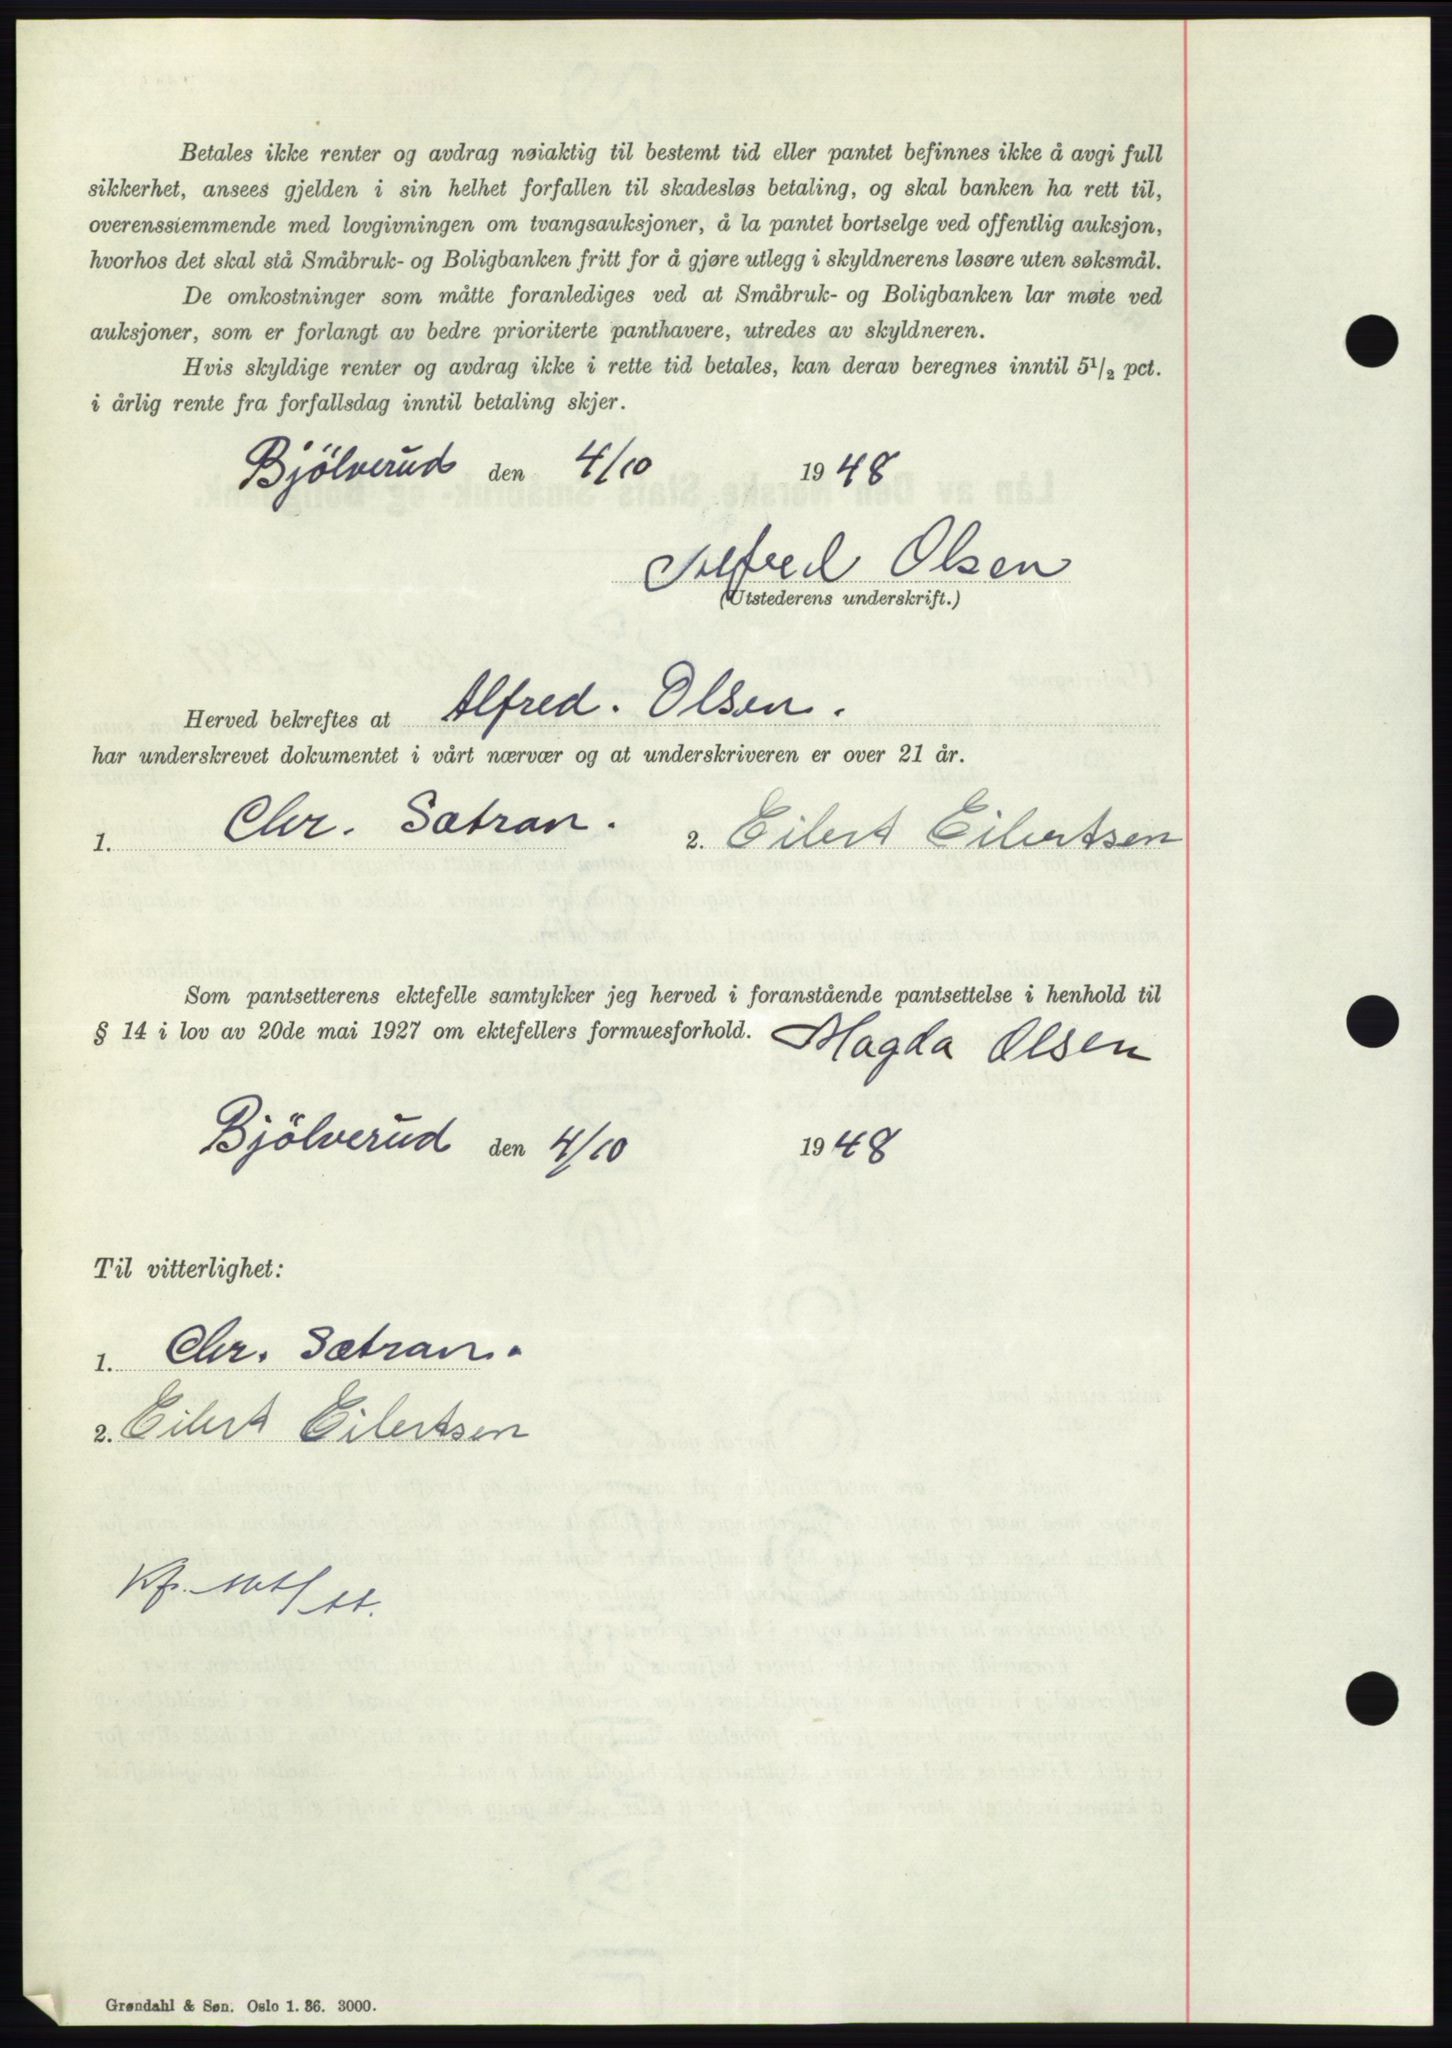 Betales ikke renter og avdrag nøiaktig til bestemt tid eller pantet befinnes ikke å avgi full
sikkerhet, ansees gjelden i sin helhet forfallen til skadesløs betaling, og skal banken ha rett til,
overenssiemmende med lovgivningen om tvangsauksjoner, å la pantet bortselge ved offentlig auksjon,
hvorhos det skal stå Småbruk- og Boligbanken fritt for å gjøre utlegg i skyldnerens løsøre uten søksmål.
De omkostninger som måtte foranlediges ved at Småbruk- og Boligbanken lar møte ved
auksjoner, som er forlangt av bedre prioriterte panthavere, utredes av skyldneren.
Hvis skyldige renter og avdrag ikke i rette tid betales, kan derav beregnes inntil 5 1/2 pct.
i årlig rente fra forfallsdag inntil betaling skjer.
Bjölverud den 4/10 1948
Alfred Olsen
(Utstederens underskrift.)
Herved bekreftes at Alfred. Olsen.
har underskrevet dokumentet i vårt nærvær og at underskriveren er over 21 år.
1. Chr. Sætran. 2. Eilert Eilertsen
Som pantsetterens ektefelle samtykker jeg herved i foranstående pantsettelse i henhold til
§ 14 i lov av 20de mai 1927 om ektefellers formuesforhold. Magda Olsen
Bjölverud den 4/10 1948
Til vitterlighet:
1. Chr. Sætran.
2. Eilert Eilertsen
Grøndahl & Søn. Oslo 1. 36. 3000.